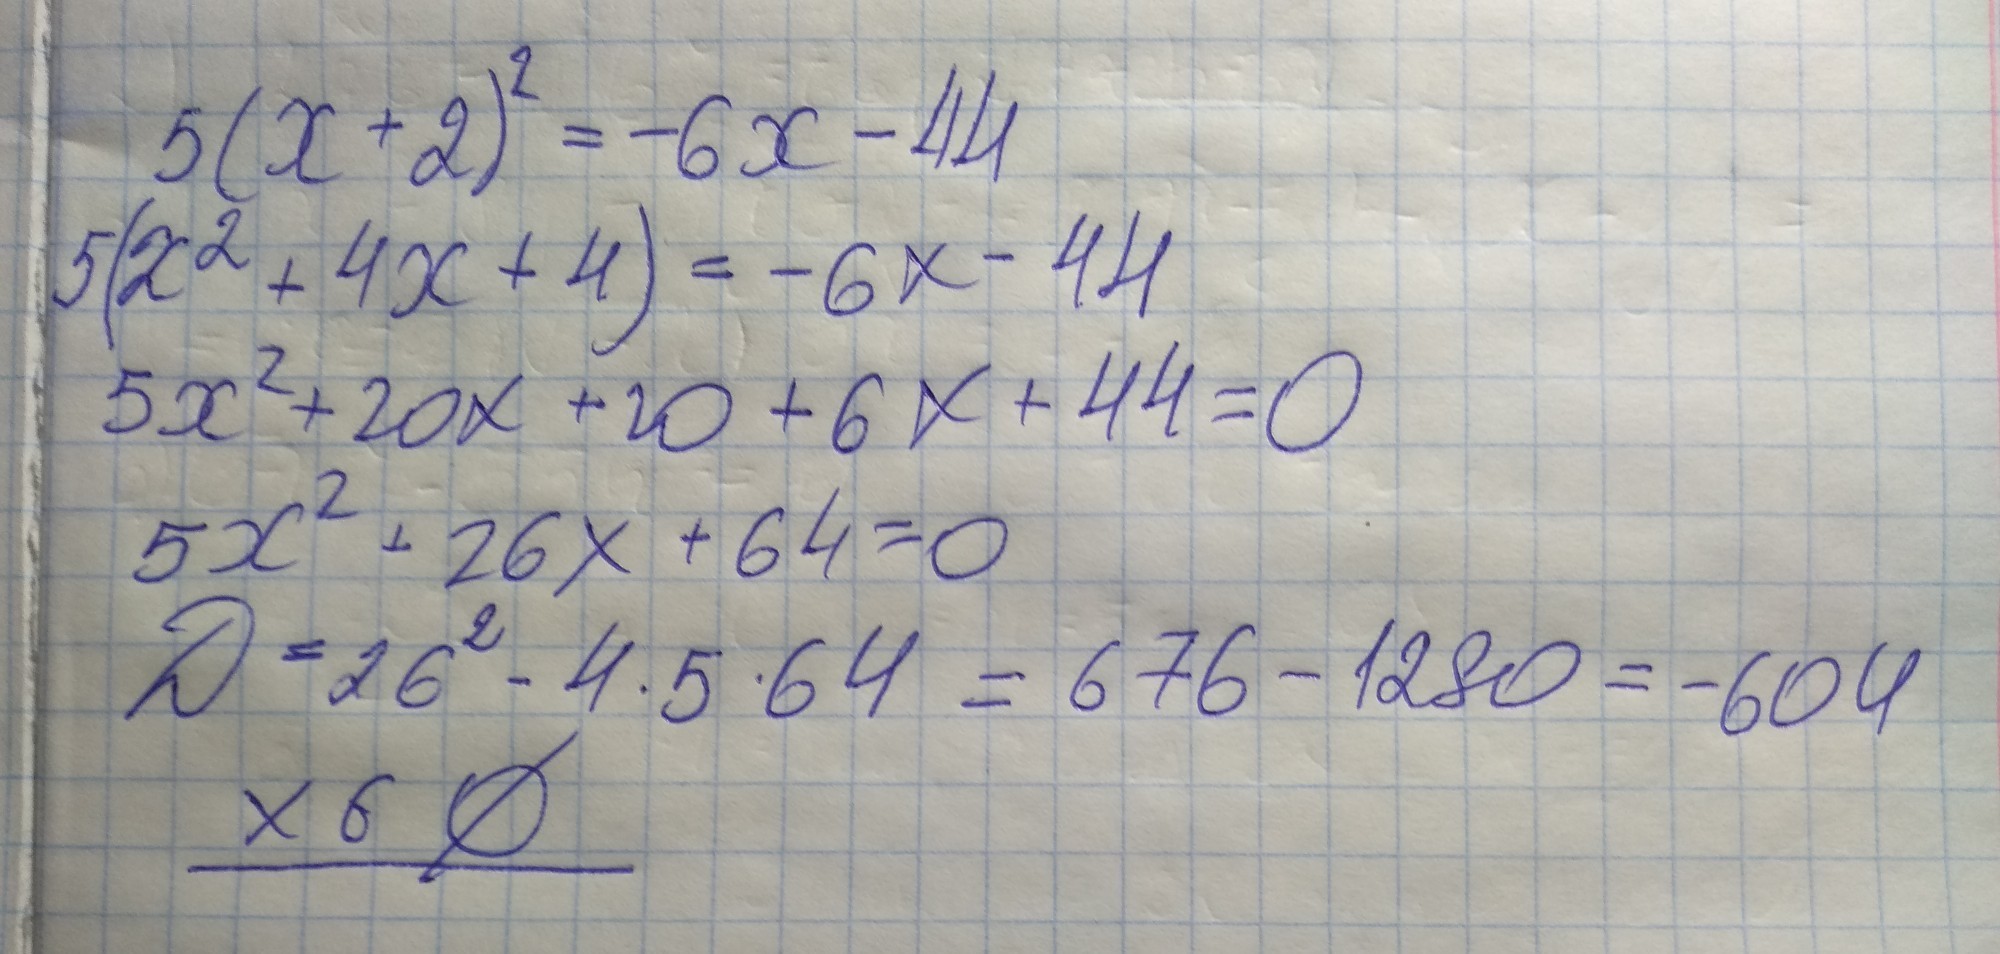 5(x+2)² = -6x - 44
5(x² + 4x + 4) = -6x - 44
5x² + 20x + 20 + 6x + 44 = 0
5x² + 26x + 64 = 0
D = 26² - 4·5·64 = 676 - 1280 = -604
x б Ø